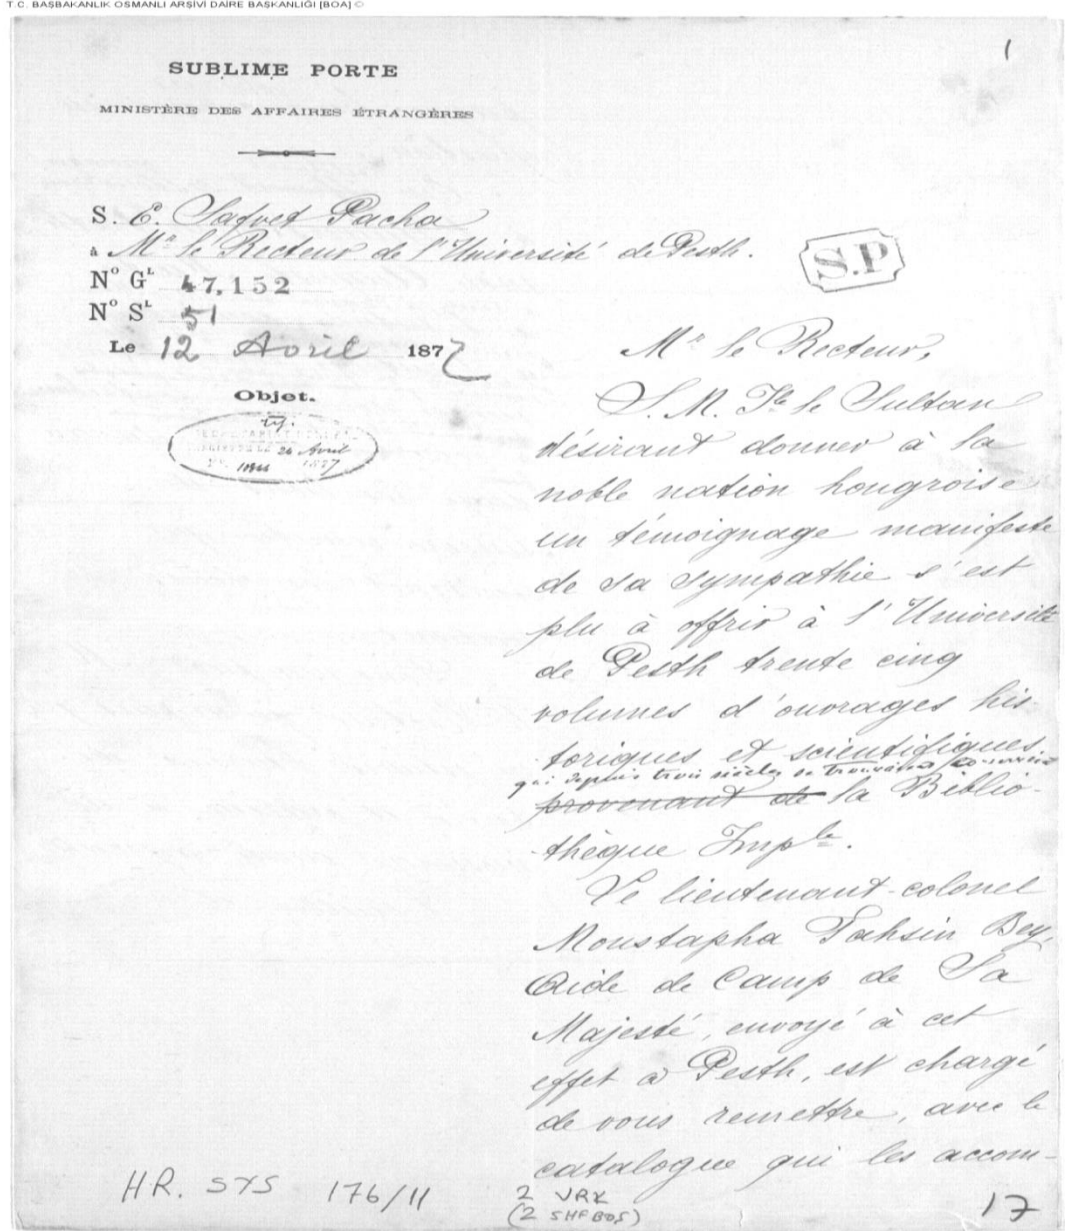 T.C. BAŞBAKANLIK OSMANLI ARŞİVİ DAİRE BAŞKANLIĞI [BOA] ©
1
SUBLIME PORTE
MINISTÈRE DES AFFAIRES ÉTRANGÈRES
S. E. Safvet Pacha
à Mr le Recteur de l'Université de Pesth.
No GL 47,152
No SL 51
Le 12 Avril 1877
S.P
Objet.
24 Avril
1877
Mr le Recteur,
S. M. Ile le Sultan
désirant donner à la
noble nation hongroise
un témoignage manifeste
de sa sympathie s'est
plu à offrir à l'Université
de Pesth trente cinq
volumes d'ouvrages his
toriques et scientifiques.
qui depuis trois siècles se trouvaient
provenant de la Biblio-
thèque Imple.
Le lieutenant-colonel
Moustapha Tahsin Bey,
Aide de Camp de Sa
Majesté, envoyé à cet
effet à Pesth, est chargé
de vous remettre, avec le
catalogue qui les accom-
HR. SYS 176/11
2 VRK
(2 SHF BOŞ)
17